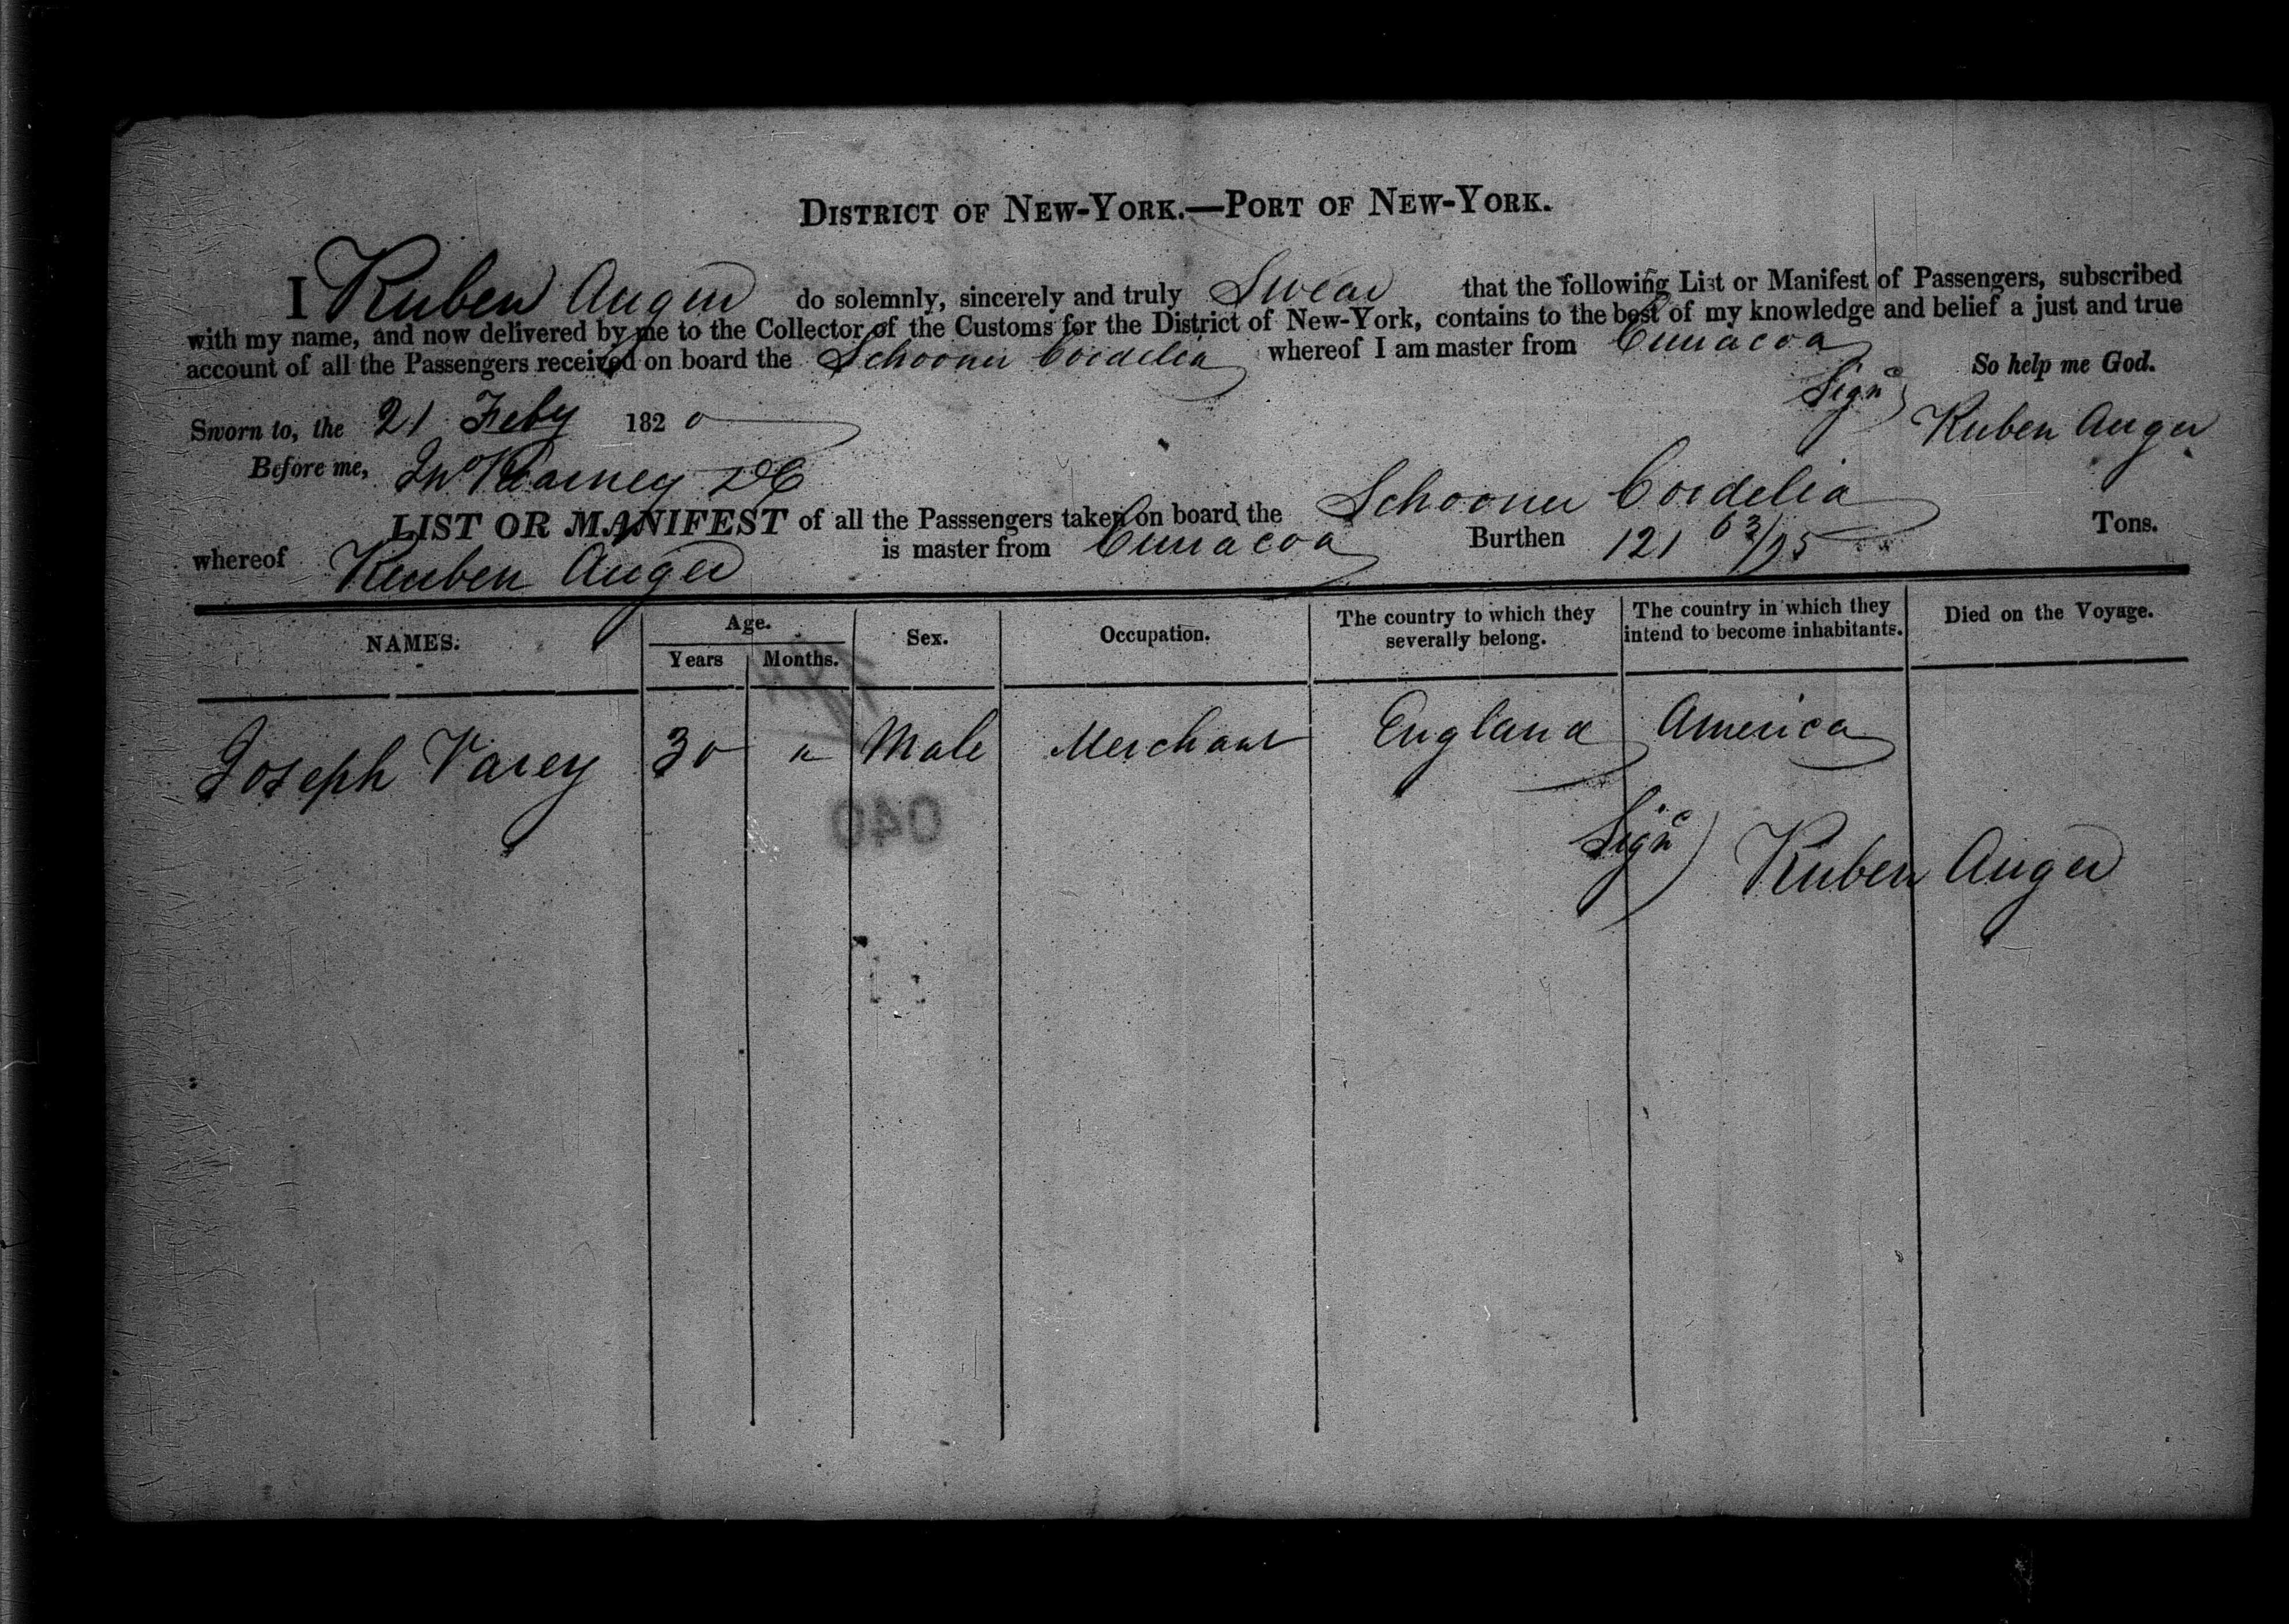 DISTRICT OF NEW-YORK.—PORT OF NEW-YORK.
I Ruben Auger do solemnly, sincerely and truly Swear that the following List or Manifest of Passengers, subscribed
with my name, and now delivered by me to the Collector of the Customs for the District of New-York, contains to the best of my knowledge and belief a just and true
account of all the Passengers received on board the Schooner Cordelia whereof I am master from Curracoa
So help me God.
Sign
Sworn to, the 21 Feby 1820
Ruben Auger
Before me, Jno Kearney DC
LIST OR MANIFEST of all the Passsengers taken on board the Schooner Cordelia
whereof Reuben Auger is master from Curracoa Burthen 121 63/95 Tons.
NAMES. Age. Years Months. Sex. Occupation. The country to which they severally belong. The country in which they intend to become inhabitants. Died on the Voyage.
Joseph Varey 30 Male Merchant England America
Sign Ruben Auger
040